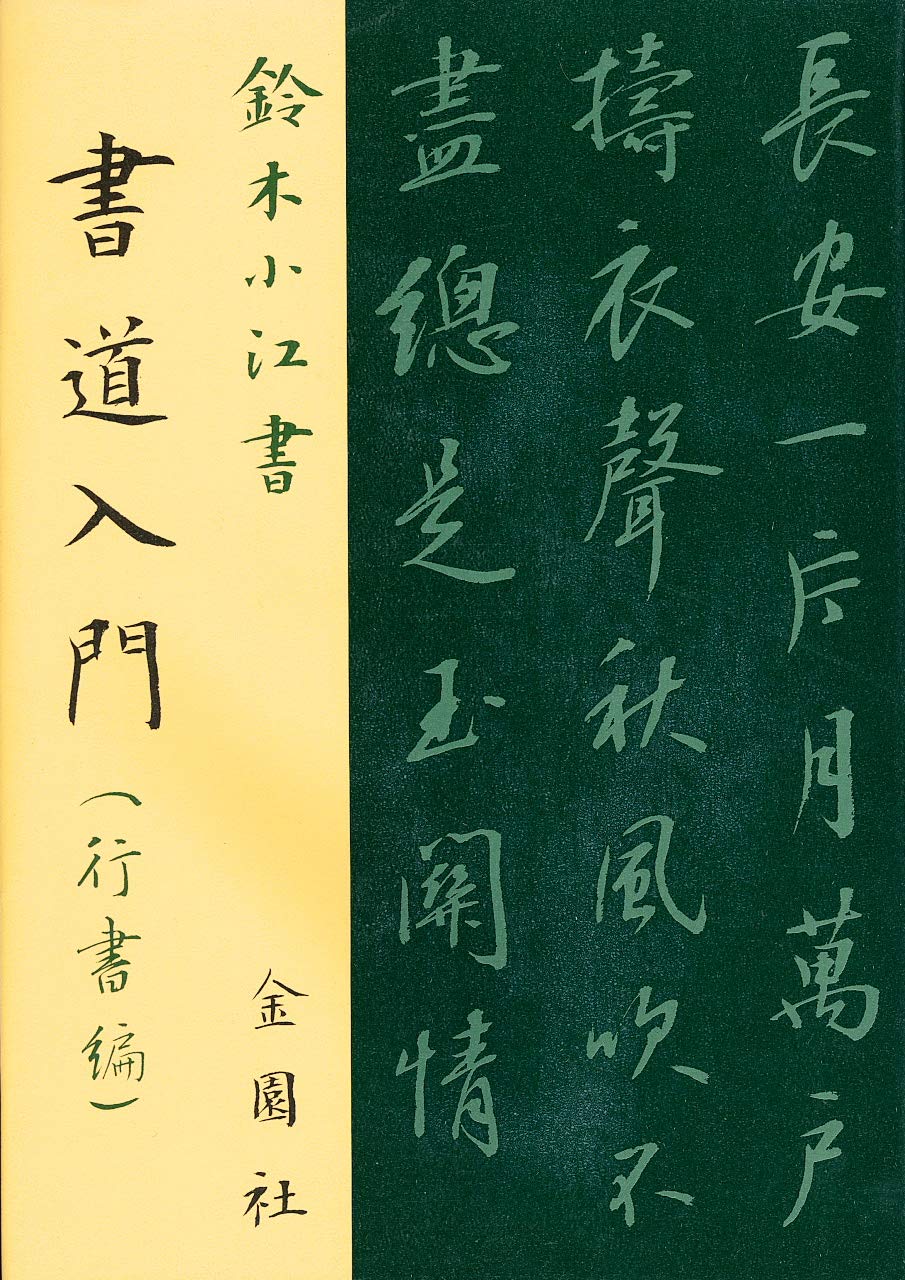 長安一片月萬戸
擣衣聲秋風吹不
盡總是玉關情
鈴木小江書
書道入門（行書編）
金園社